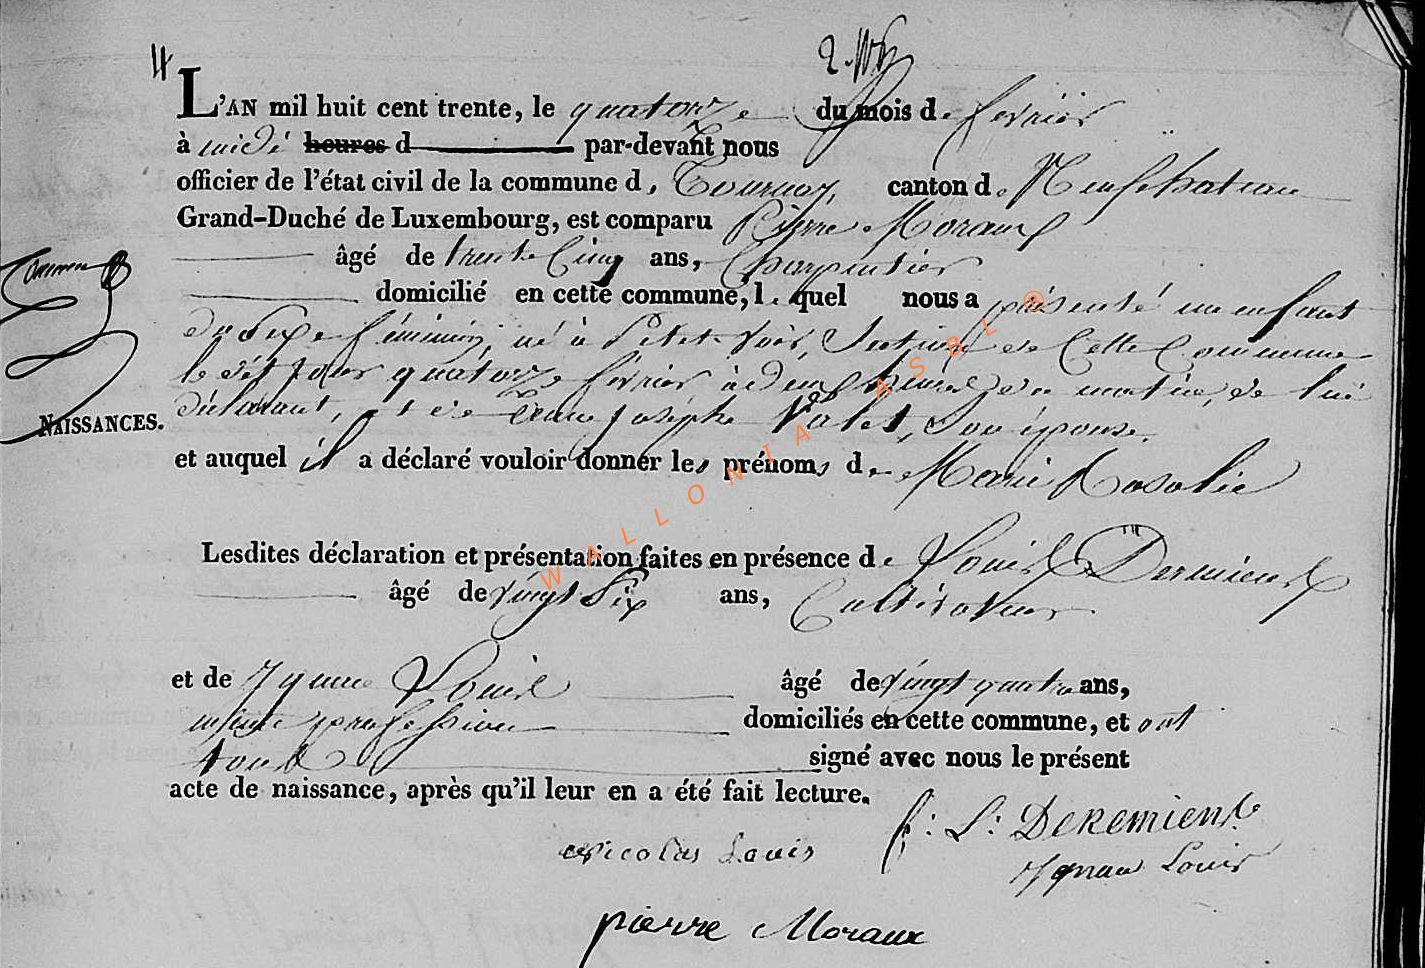 4
L'AN mil huit cent trente, le quatorze du mois de fevrier
à midi heures d par-devant nous
officier de l'état civil de la commune de Tournay, canton de Neufchateau
Grand-Duché de Luxembourg, est comparu Pierre Moraux
âgé de trente Cinq ans, Charpentier
domicilié en cette commune, lequel nous a présenté un enfant
du Sexe féminin, né à Petit Voir, Section de Cette Commune
le dit jour quatorze fevrier à deux heures du matin, de lui
déclarant, et de Anne Josephe Valet, Son épouse,
NAISSANCES.
et auquel il a déclaré vouloir donner les prénoms de Marie Rosalie
Lesdites déclaration et présentation faites en présence de Louis Deremiens
âgé de vingt Six ans, Cultivateur
et de Ignace Louis âgé de vingt quatre ans,
même profession domiciliés en cette commune, et ont
tous signé avec nous le présent
acte de naissance, après qu'il leur en a été fait lecture.
f: L: Deremiens
Nicolas Louis
Ignace Louis
pierre Moraux
WALLONIA ASBL ®